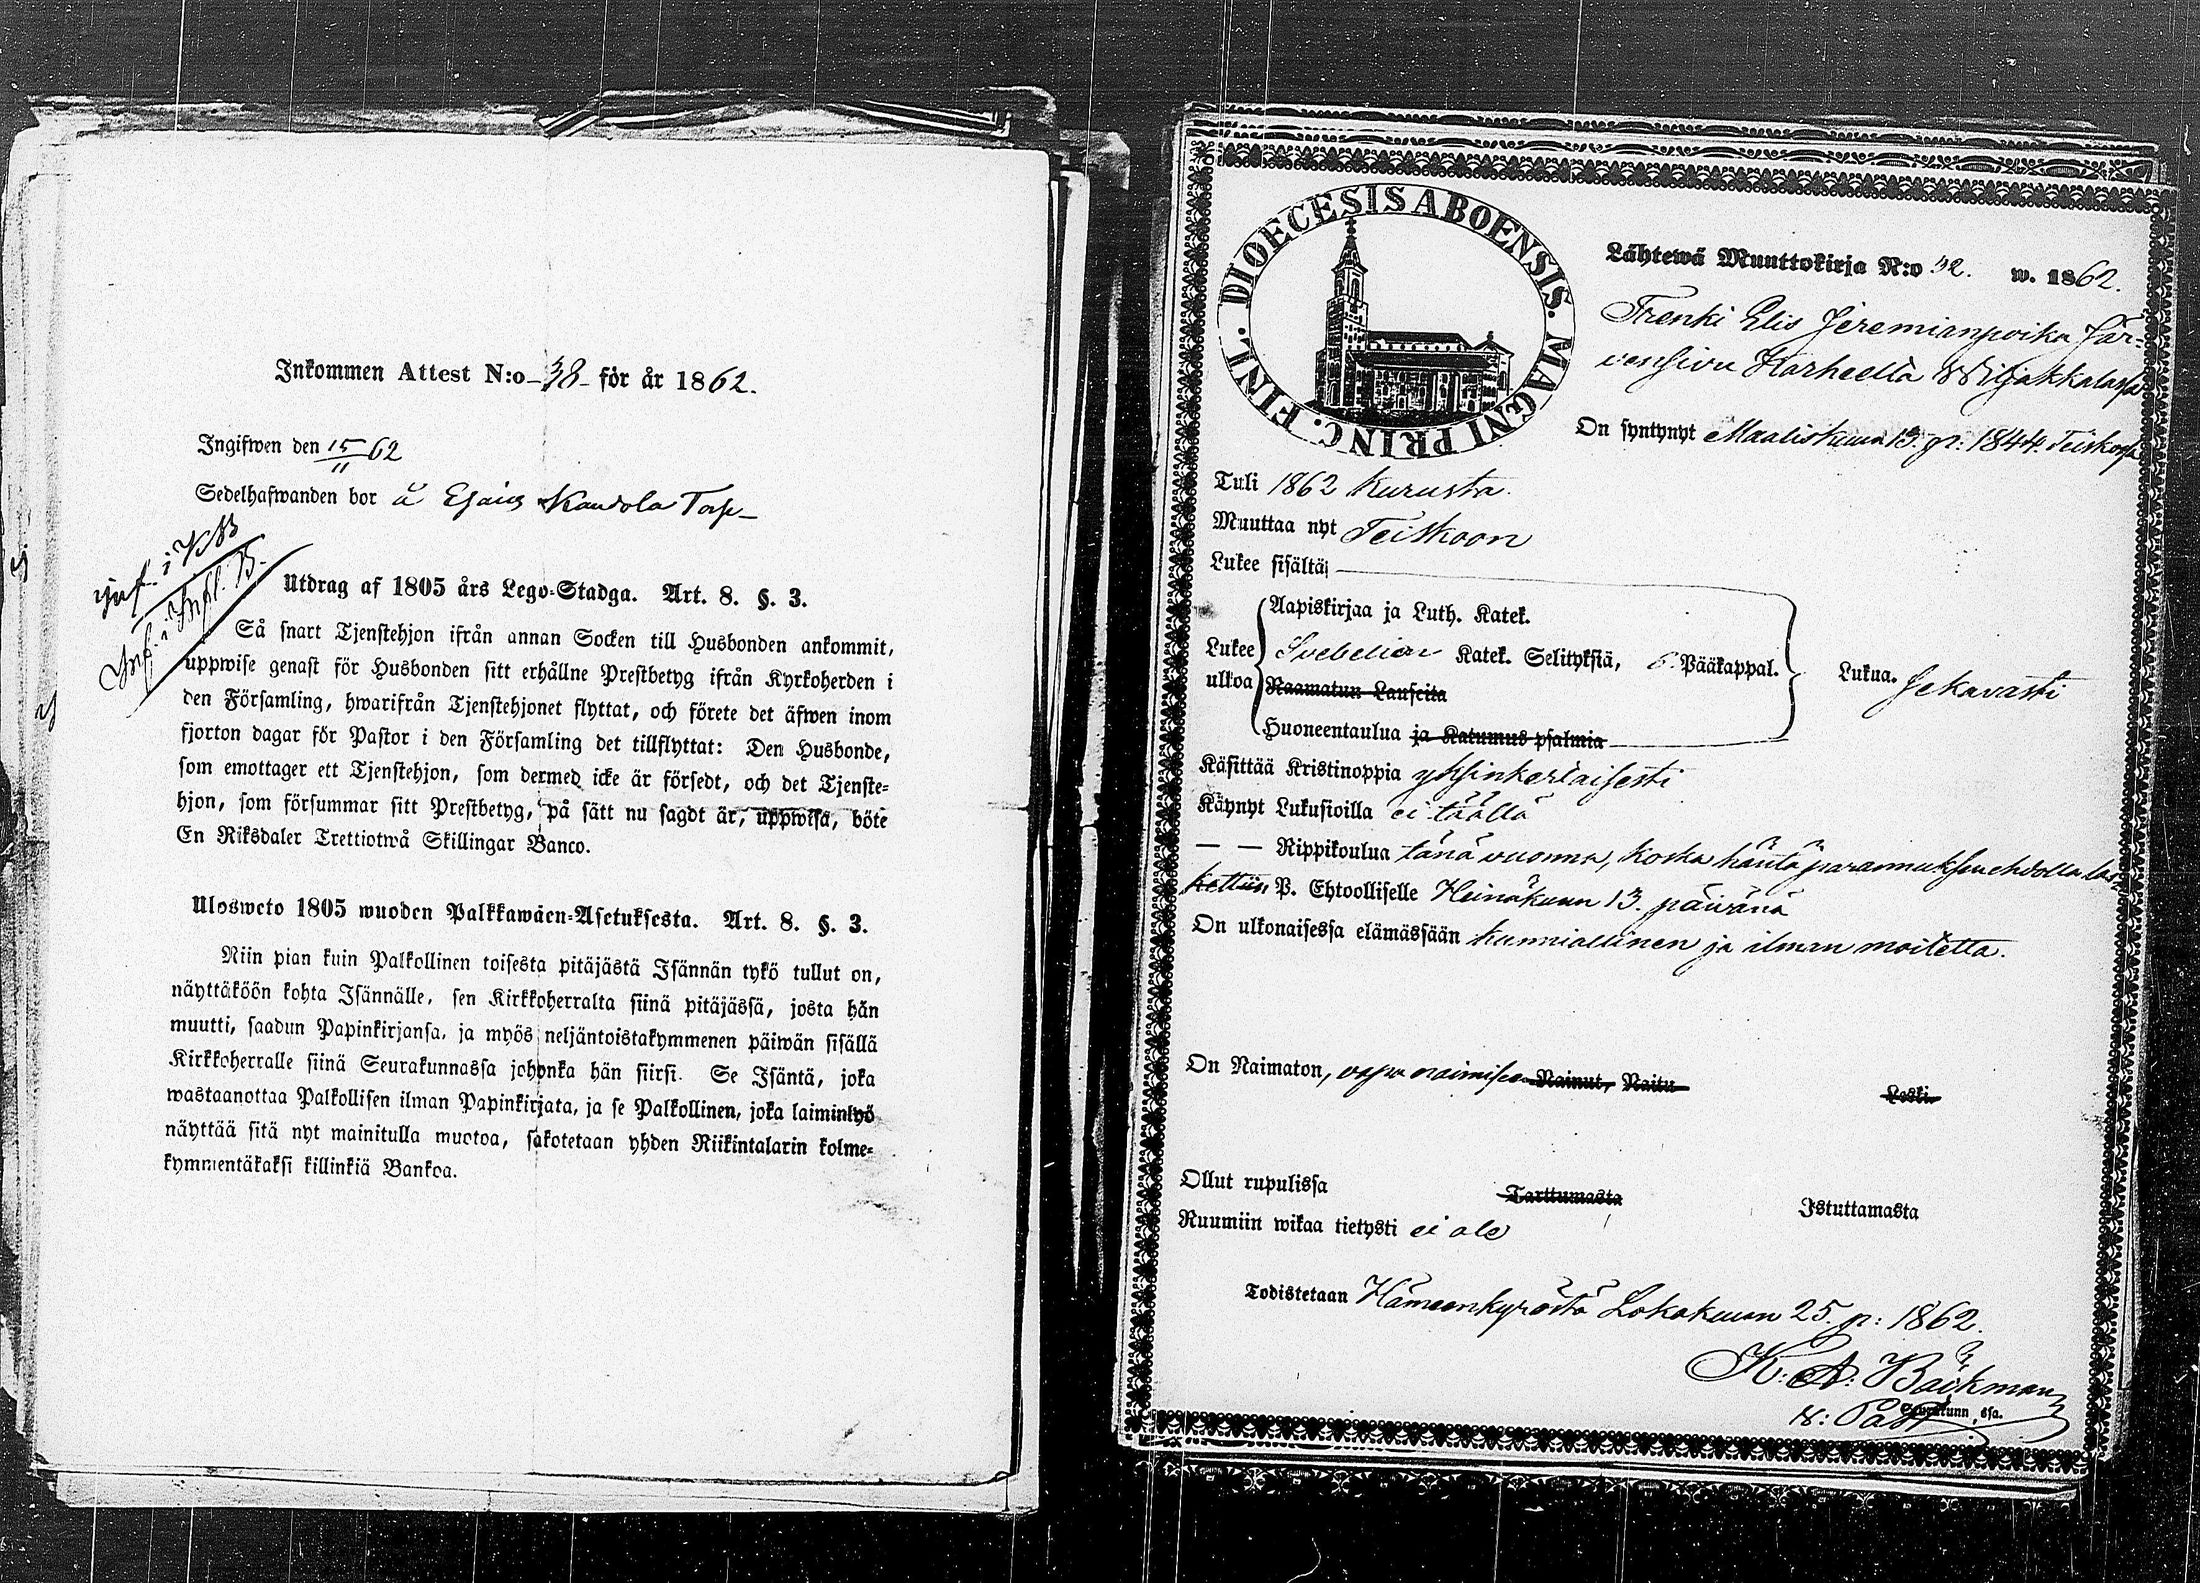 Inkommen Attest N:o 38 för år 1862.
Ingifwen den 15/11 62
Sedelhafwanden bor å Esaias Kaudola Torp
inf. i KB
Inf. i Infl. B.
Utdrag af 1805 års Lego-Stadga. Art. 8. §. 3.
Så snart Tjenstehjon ifrån annan Socken till Husbonden ankommit,
uppwise genast för Husbonden sitt erhållne Prestbetyg ifrån Kyrkoherden i
den Församling, hwarifrån Tjenstehjonet flyttat, och förete det äfwen inom
fjorton dagar för Pastor i den Församling det tillflyttat: Den Husbonde,
som emottager ett Tjenstehjon, som dermed icke är försedt, och det Tjenste-
hjon, som försummar sitt Prestbetyg, på sätt nu sagdt är, uppwisa, böte
En Riksdaler Trettiotwå Skillingar Banco.
Ulosweto 1805 wuoden Palkkawäen-Asetuksesta. Art. 8. §. 3.
Niin pian kuin Palkollinen toisesta pitäjästä Isännän tykö tullut on,
näyttäköön kohta Isännälle, sen Kirkkoherralta siinä pitäjässä, josta hän
muutti, saadun Papinkirjansa, ja myös neljäntoistakymmenen päiwän sisällä
Kirkkoherralle siinä Seurakunnassa johonka hän siirsi. Se Isäntä, joka
wastaanottaa Palkollisen ilman Papinkirjata, ja se Palkollinen, joka laiminlyö
näyttää sitä nyt mainitulla muotoa, sakotetaan yhden Riikintalarin kolme-
kymmentäkaksi killinkiä Bankoa.
DIOECESIS ABOENSIS. MAGNI PRINC. FINL.
Lähtewä Muuttokirja N:o 32. w. 1862.
Trenki Elis Jeremianpoika Jär-
vensivu Harheelta Wiljakkalassa
On syntynyt Maaliskuun 13. p: 1844. Teiskossa
Tuli 1862 Kurusta.
Muuttaa nyt Teiskoon
Lukee sisältä
Lukee ulkoa
Aapiskirjaa ja Luth. Katek.
Svebelion Katek. Selityksiä, 6 Pääkappal.
Raamatun Lauseita
Huoneentaulua ja Katumus psalmia
Lukua. Sekavasti
Käsittää Kristinoppia yksinkertaisesti
Käynyt Lukusioilla ei täällä
— — Rippikoulua tänä vuonna, koska häntä parannuksen ehdolla las-
kettiin P. Ehtoolliselle Heinäkuun 13. päivänä
On ulkonaisessa elämässään kunniallinen ja ilman moitetta.
On Naimaton, vapa naimiseen Nainut, Naitu Leski.
Ollut rupulissa Tarttumasta Istuttamasta
Ruumiin wikaa tietysti ei ole
Todistetaan Hämeenkyröstä Lokakuun 25. p: 1862.
K. A. Bäckman
Past
Seurakunn ssa.